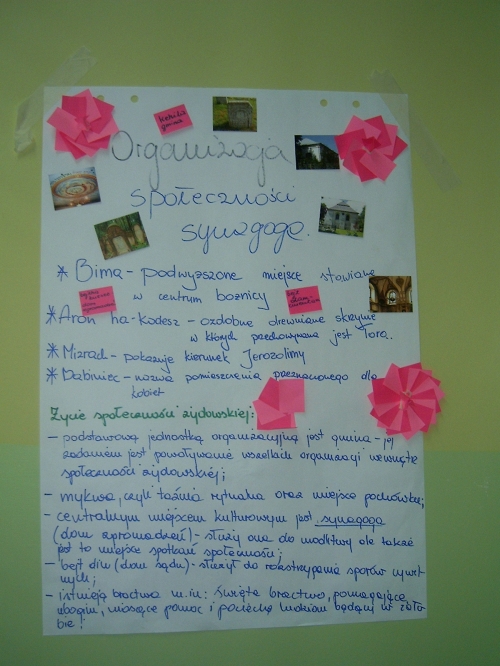 Kehila gmina
Organizacja
społeczności
synagoga.
* Bima - podwyższone miejsce stawiane
w centrum bożnicy
* Aron ha-kodesz - ozdobne drewniane skrzynie
w których przechowywana jest Tora.
* Mizrach - pokazuje kierunek Jerozolimy
* Babiniec - nazwa pomieszczenia przeznaczonego dla
kobiet
Życie społeczności żydowskiej:
- podstawową jednostką organizacyjną jest gmina - jej
zadaniem jest powoływanie wszelkich organizacji wewnątrz
społeczności żydowskiej;
- mykwa, czyli łaźnia rytualna oraz miejsce pochówków;
- centralnym miejscem kulturowym jest synagoga
(dom zgromadzeń) - służy ona do modlitwy ale także
jest to miejsce spotkań społeczności;
- bejt din (dom sądu) - służył do rozstrzygania sporów
- istnieją bractwa m.in: Święte bractwo, pomagające
ubogim, niosące pomoc i pociechę ludziom będącym w żało
bie!